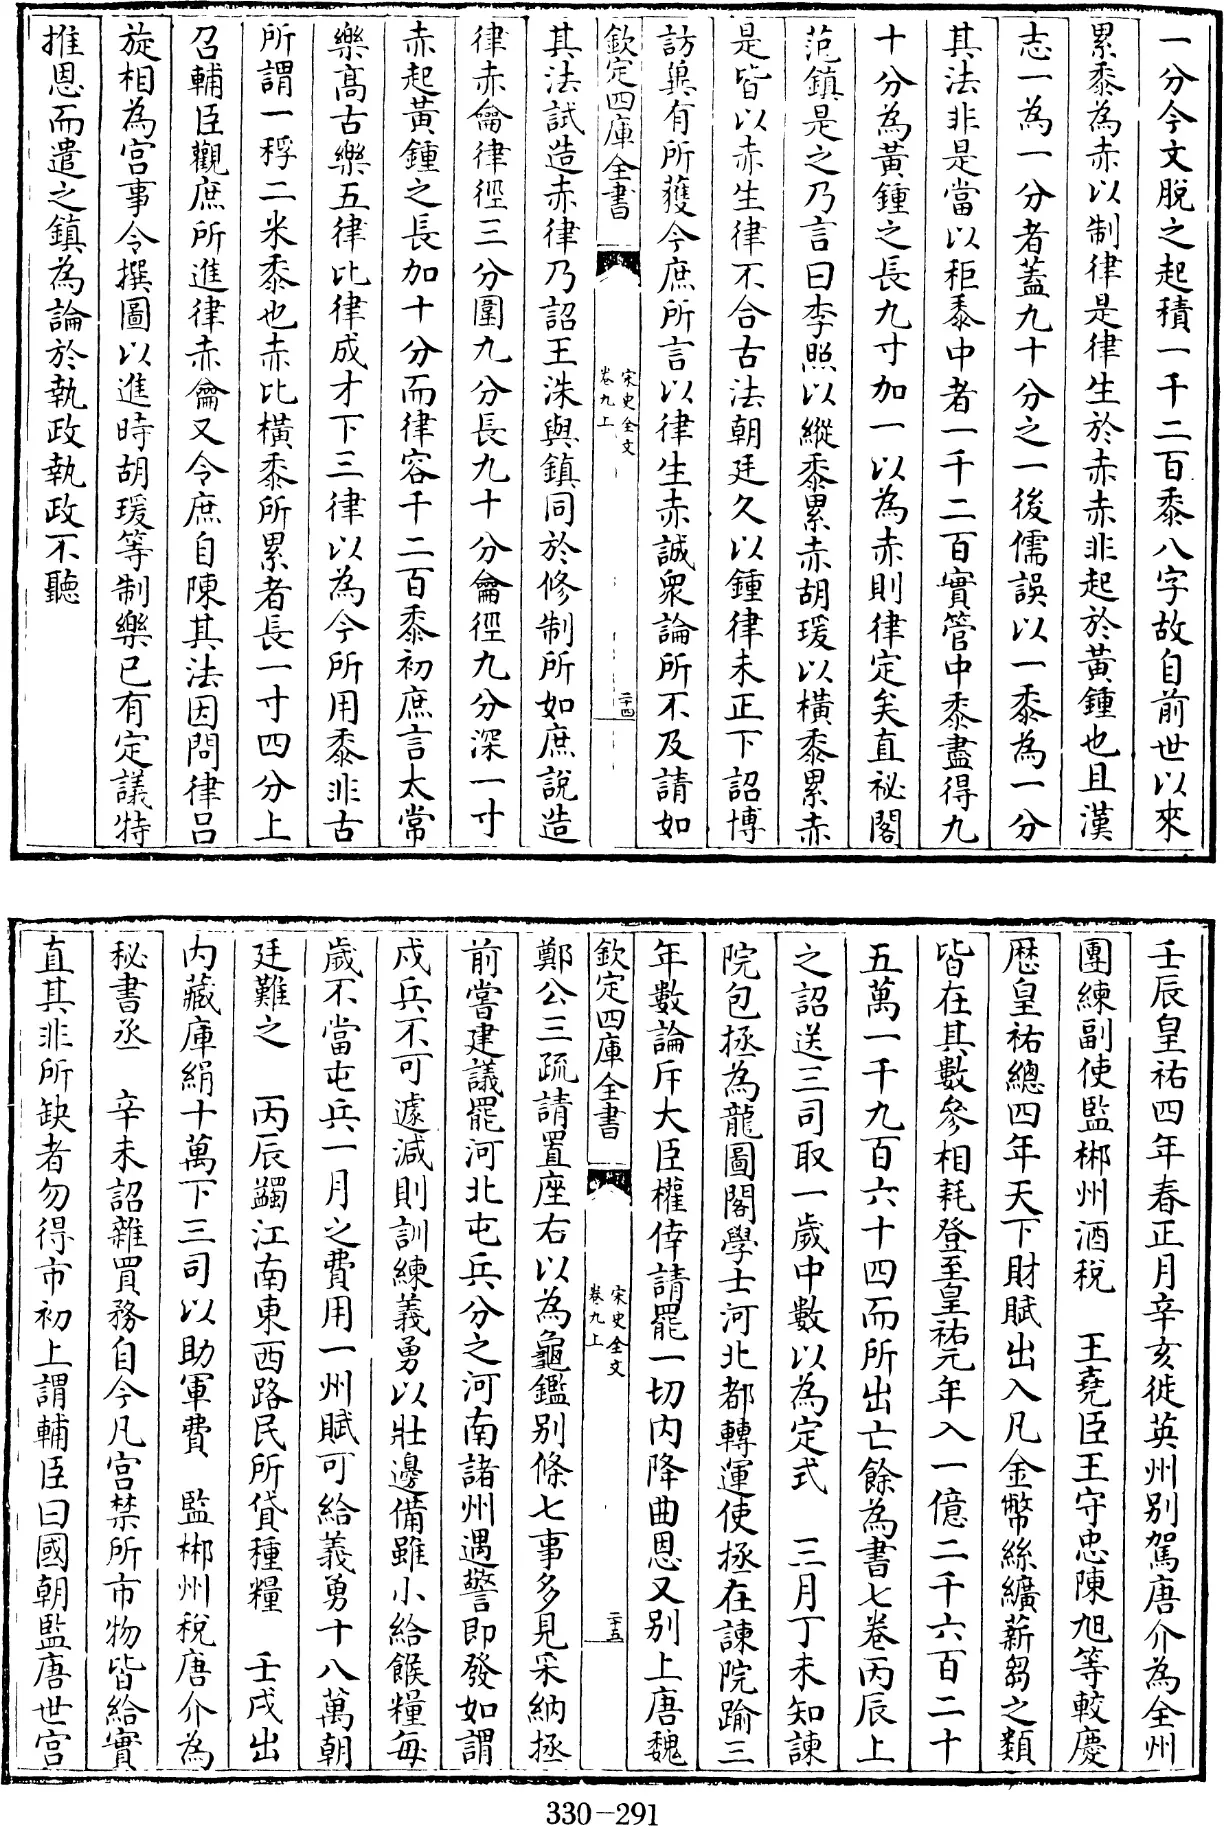 一分今文脫之起積一千二百黍八字故自前世以來
累黍為赤以制律是律生於赤赤非起於黃鍾也且漢
志一為一分者蓋九十分之一後儒誤以一黍為一分
其法非是當以秬黍中者一千二百實管中黍盡得九
十分為黃鍾之長九寸加一以為赤則律定矣直祕閣
范鎮是之乃言曰李照以縱黍累赤胡瑗以橫黍累赤
是皆以赤生律不合古法朝廷久以鍾律未正下詔博
訪具有所獲今庶所言以律生赤誠衆論所不及請如
欽定四庫全書
宋史全文
卷九上
二十四
其法試造赤律乃詔王洙與鎮同於修制所如庶說造
律赤龠律徑三分圍九分長九十分龠徑九分深一寸
赤起黃鍾之長加十分而律容千二百黍初庶言太常
樂高古樂五律比律成才下三律以為今所用黍非古
所謂一稃二米黍也赤比橫黍所累者長一寸四分上
召輔臣觀庶所進律赤龠又令庶自陳其法因問律呂
旋相為宮事令撰圖以進時胡瑗等制樂已有定議特
推恩而遣之鎮為論於執政執政不聽
壬辰皇祐四年春正月辛亥徙英州别駕唐介為全州
團練副使監郴州酒稅 王堯臣王守忠陳旭等較慶
厯皇祐總四年天下財賦出入凡金幣絲纊薪芻之類
皆在其數參相耗登至皇祐元年入一億二千六百二十
五萬一千九百六十四而所出亡餘為書七卷丙辰上
之詔送三司取一歲中數以為定式 三月丁未知諫
院包拯為龍圖閣學士河北都轉運使拯在諫院踰三
年數論斥大臣權倖請罷一切内降曲恩又别上唐魏
欽定四庫全書
宋史全文
卷九上
二十五
鄭公三疏請置座右以為龜鑑别條七事多見采納拯
前嘗建議罷河北屯兵分之河南諸州遇警即發如謂
戍兵不可遽減則訓練義勇以壯邊備雖小給餱糧每
歲不當屯兵一月之費用一州賦可給義勇十八萬朝
廷難之 丙辰蠲江南東西路民所貸種糧 壬戌出
内藏庫絹十萬下三司以助軍費 監郴州稅唐介為
秘書丞 辛未詔雜買務自今凡宮禁所市物皆給實
直其非所缺者勿得市初上謂輔臣曰國朝監唐世宮
330-291